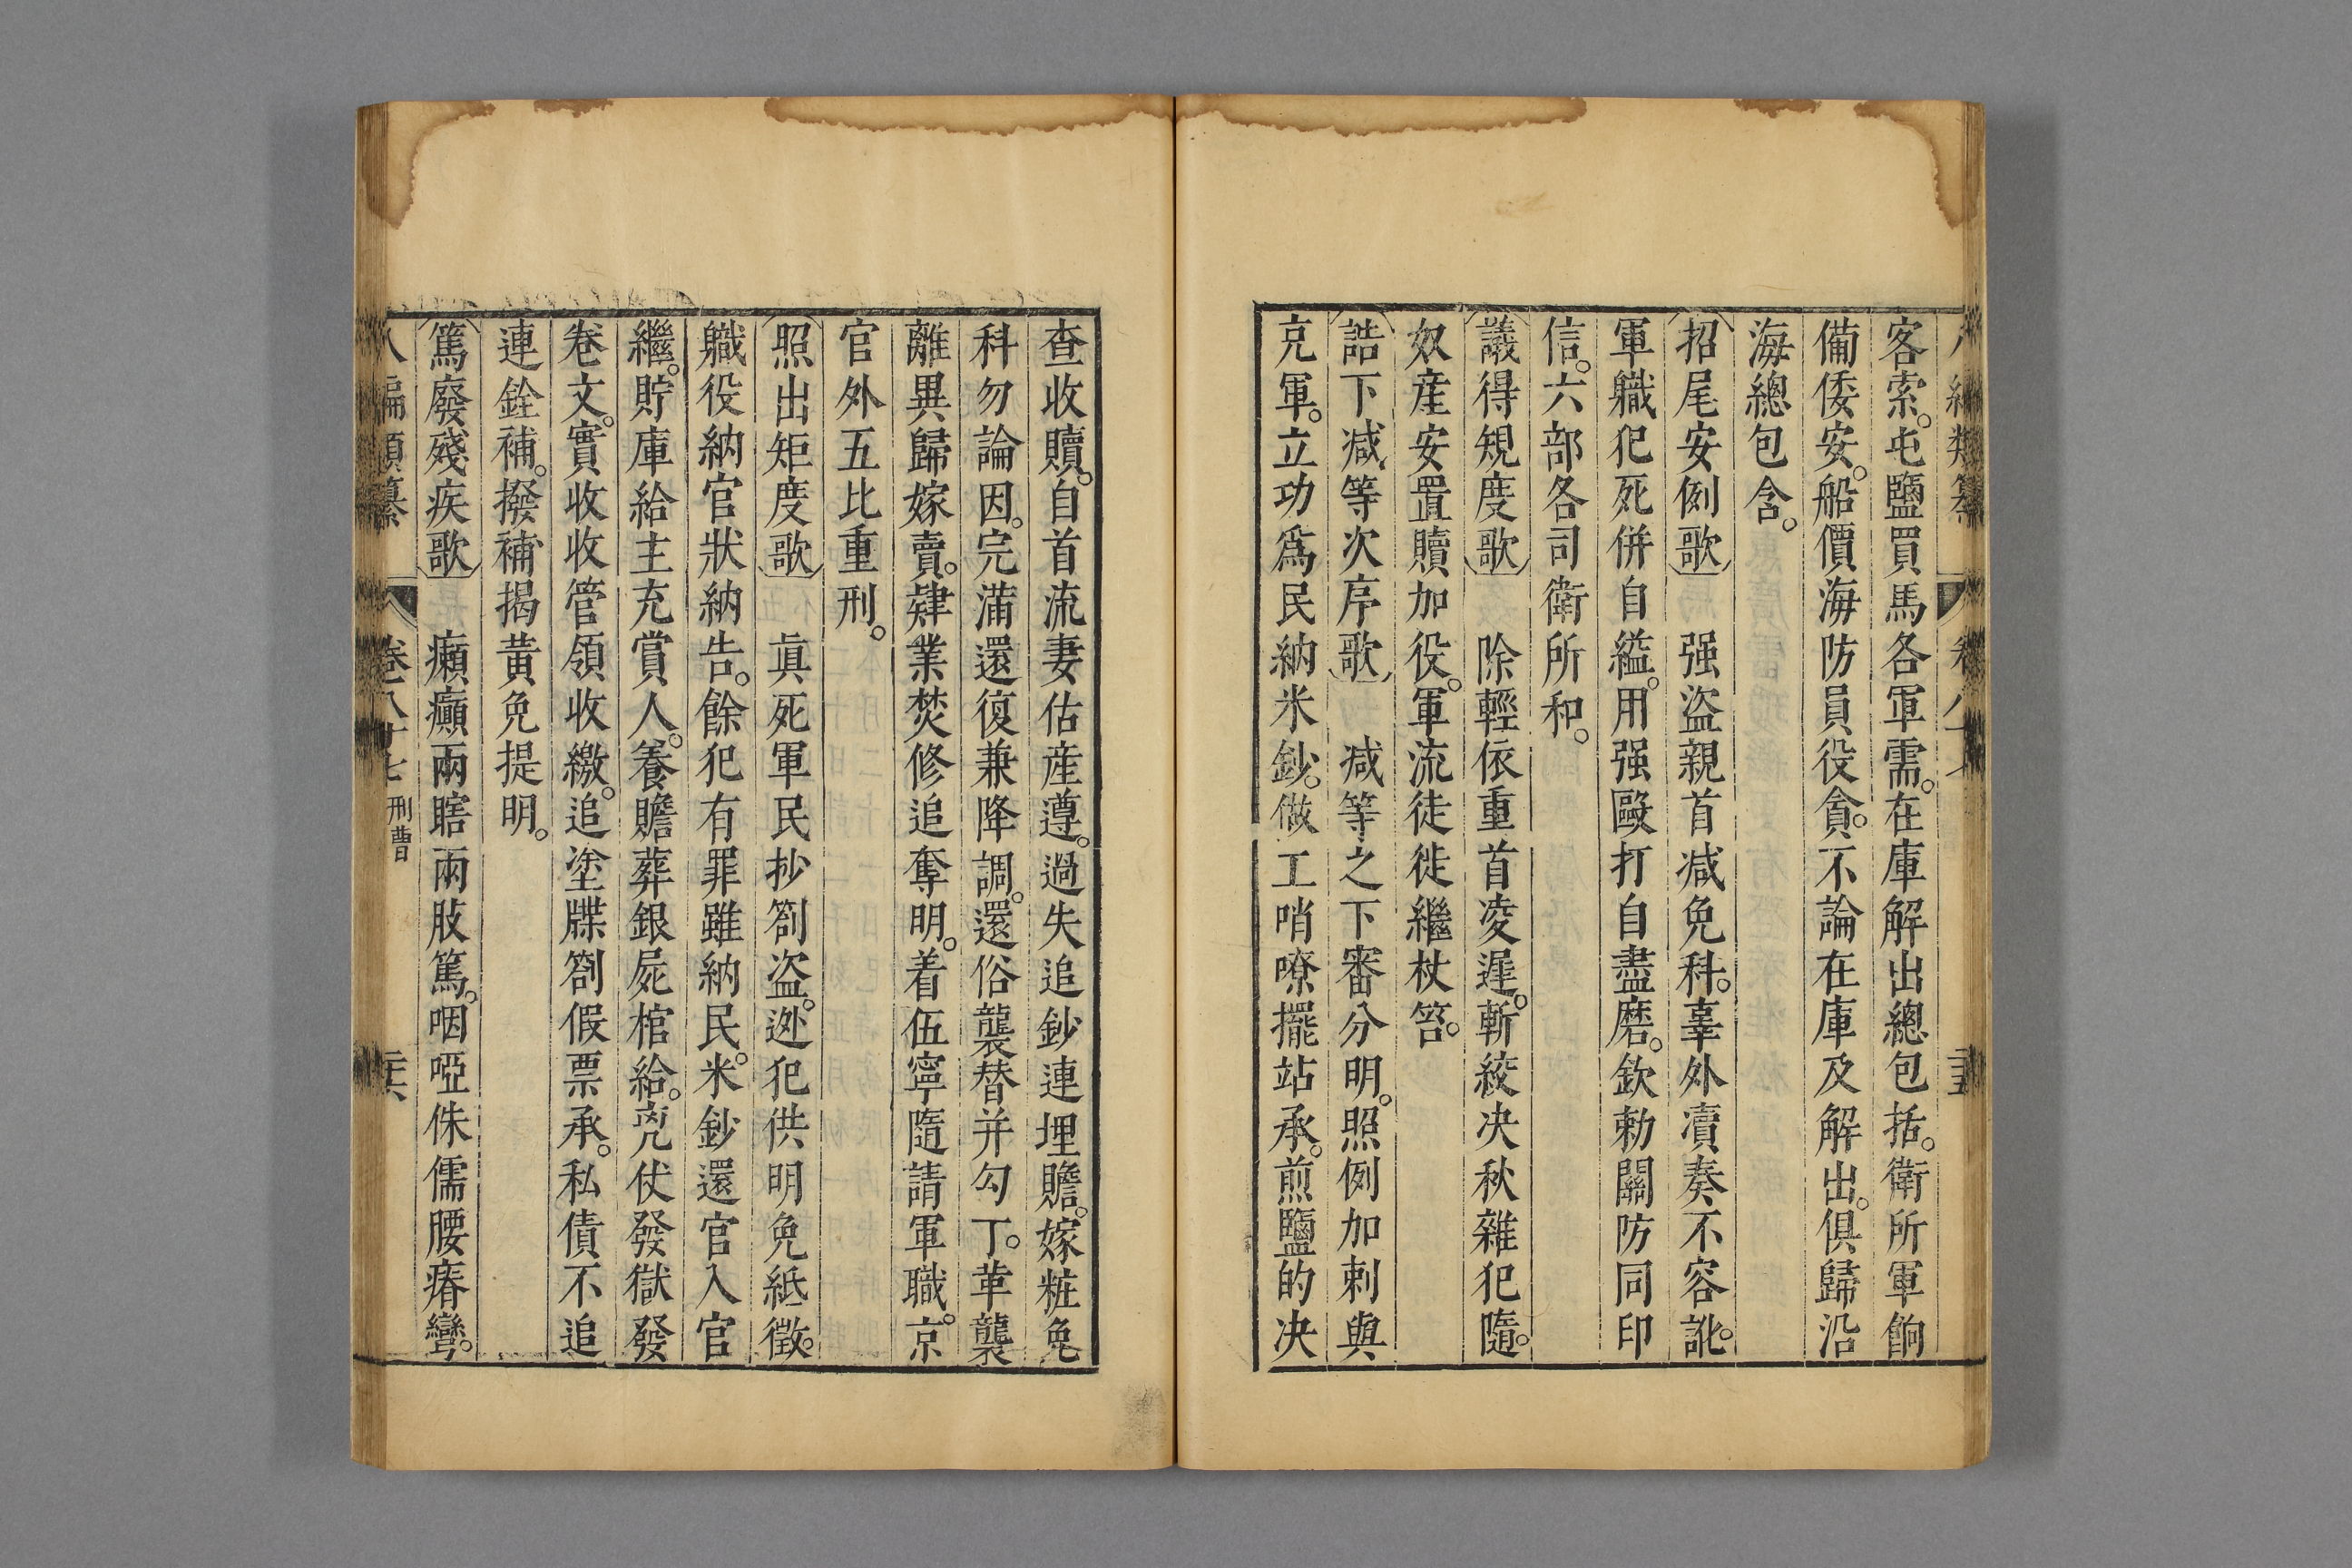 客索。屯鹽買馬各軍需。在庫解出總包括。衛所軍餉
備倭安。船價海防員役貪。不論在庫及解出。俱歸沿
海總包含。
招尾安例歌　强盜親首減免科。辜外瀆奏不容訛。
軍職犯死併自縊。用强毆打自盡磨。欽勅關防同印
信。六部各司衛所和。
議得規度歌　除輕依重首凌遲。斬絞决秋雜犯隨。
奴産安置贖加役。軍流徒徙繼杖笞。
誥下减等次序歌　减等之下審分明。照例加刺與
充軍。立功爲民納米鈔。做工哨嘹擺站承。煎鹽的决
查收贖。自首流妻估産遵。過失追鈔連埋贍。嫁粧免
科勿論因。完滿還復兼降調。還俗襲替并勾丁。革襲
離異歸嫁賣。肄業焚修追奪明。着伍寧隨請軍職。京
官外五比重刑。
照出矩度歌　眞死軍民抄劄盜。迯犯供明免紙徵。
軄役納官狀納告。餘犯有罪雖納民。米鈔還官入官
繼。貯庫給主充賞人。養贍葬銀屍棺給。兇仗發獄發
卷文。實收收管領收繳。追塗牒劄假票承。私債不追
連銓補。撥補揭黃免提明。
篤廢殘疾歌　癩癲兩瞎兩肢篤。啞侏儒腰瘠彎。
八編類纂　卷八十七　刑曹